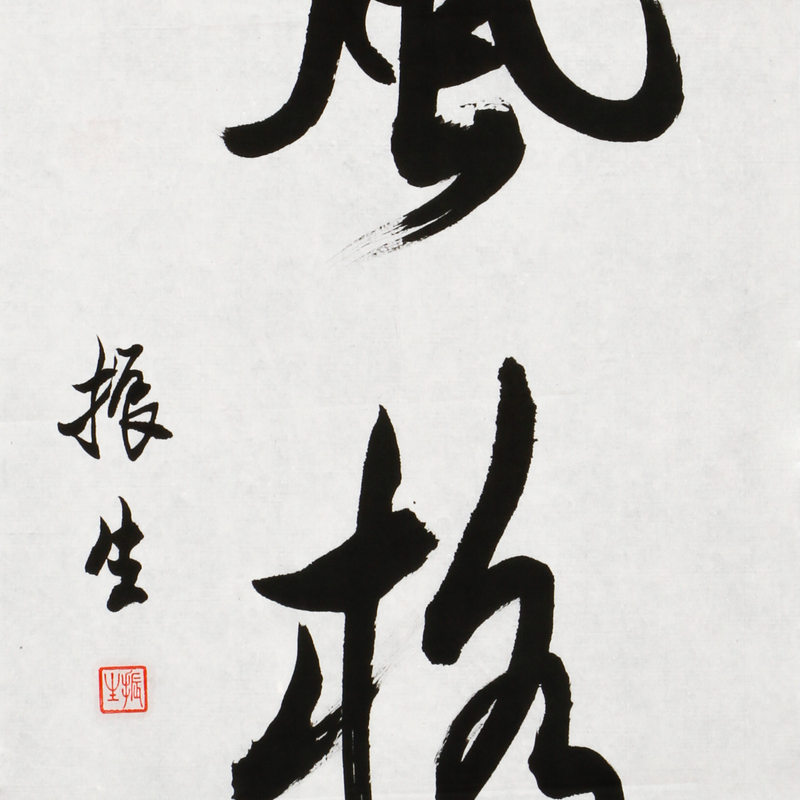 風格
振生
振生